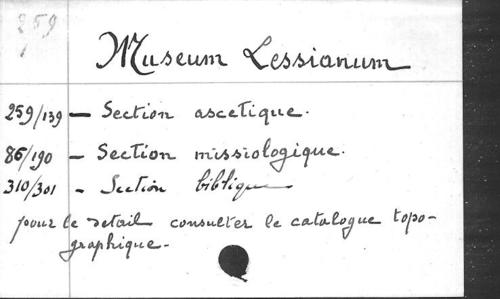 259
1
Museum Lessianum
259/139 — Section ascetique.
86/190 — Section missiologique.
310/301 - Section biblique
pour le detail consulter le catalogue topo-
graphique.-